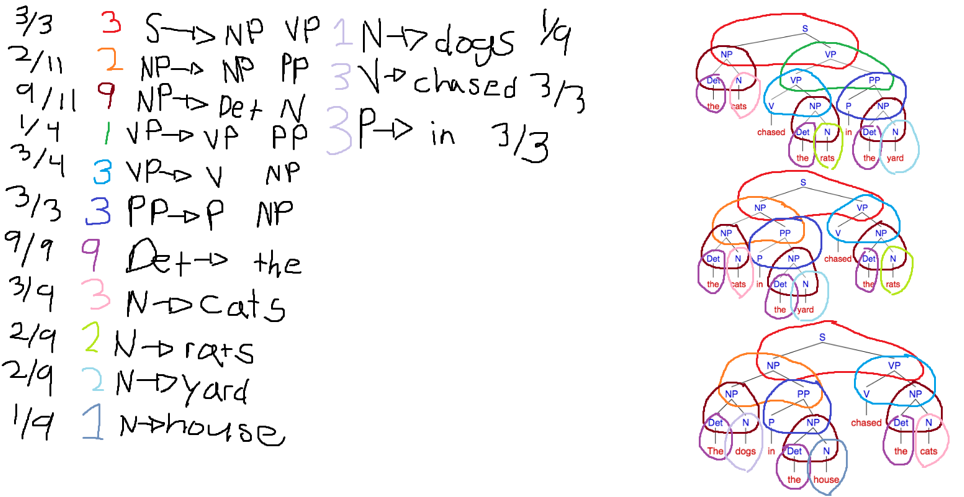 3/3 3 S → NP VP
2/11 2 NP → NP PP
9/11 9 NP → Det N
1/4 1 VP → VP PP
3/4 3 VP → V NP
3/3 3 PP → P NP
9/9 9 Det → the
3/9 3 N → cats
2/9 2 N → rats
2/9 2 N → yard
1/9 1 N → house
1 N → dogs 1/9
3 V → chased 3/3
3 P → in 3/3
S
NP VP
Det N VP PP
the cats V NP P NP
chased Det N in Det N
the rats the yard
S
NP VP
NP PP V NP
Det N P NP chased Det N
the cats in Det N the rats
the yard
S
NP VP
NP PP V NP
Det N P NP chased Det N
The dogs in Det N the cats
the house